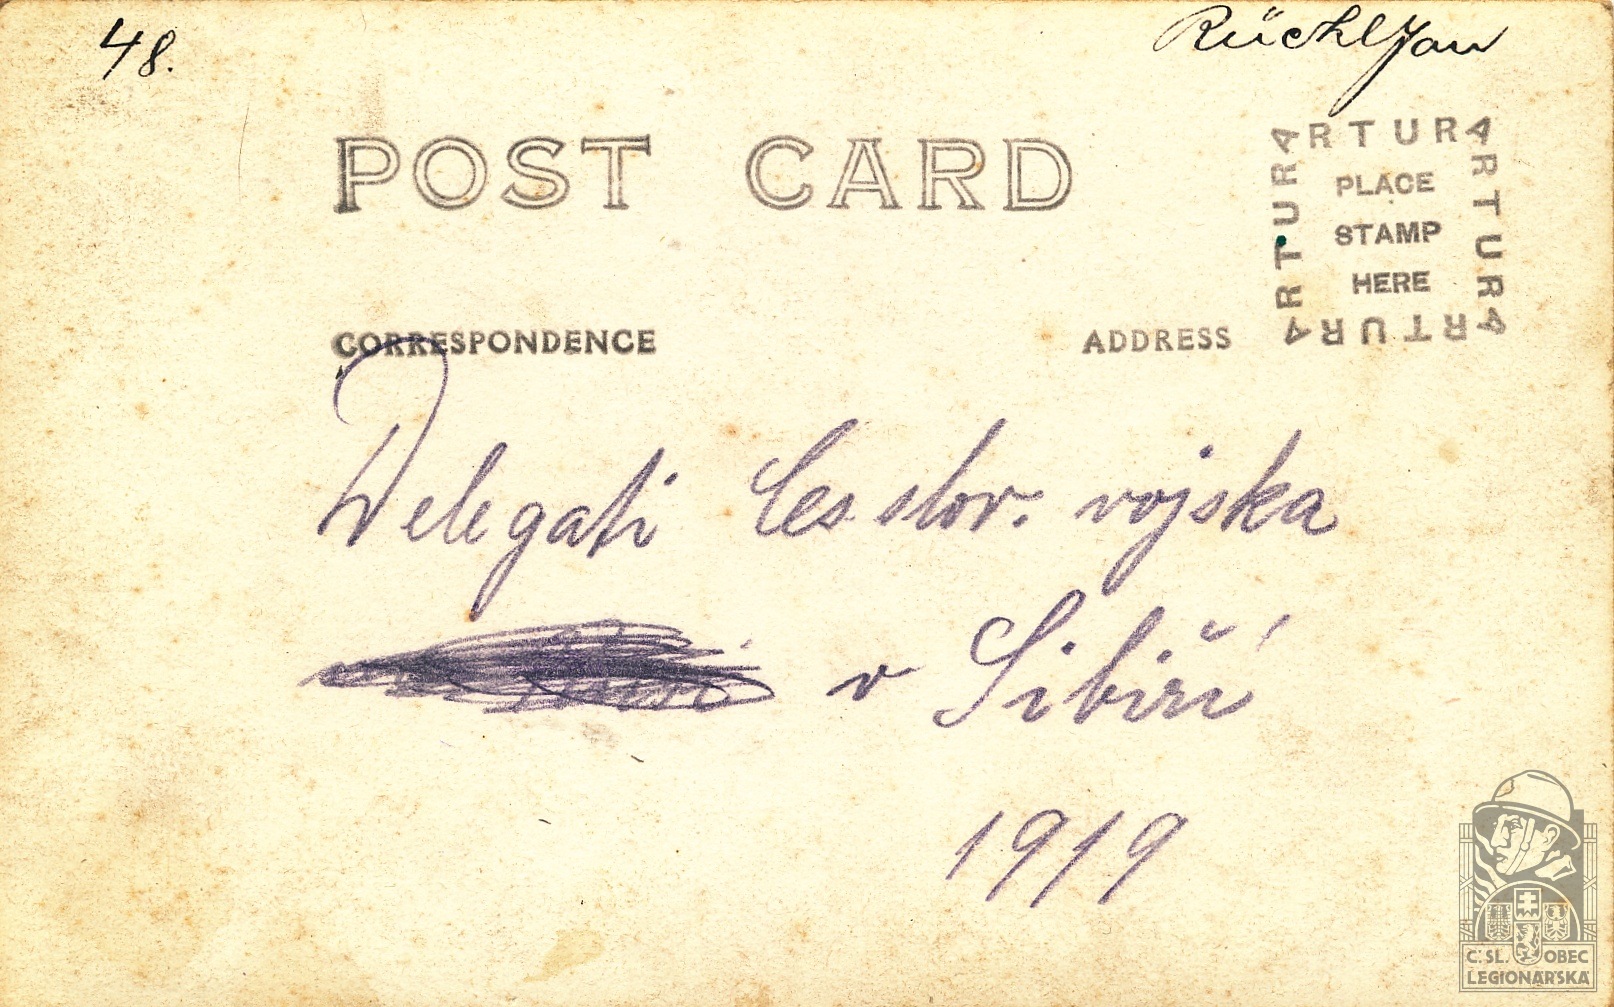 48.
Rüchl Jan
POST CARD
ARTURA
ARTURA
ARTURA
ARTURA
PLACE
STAMP
HERE
CORRESPONDENCE
ADDRESS
Delegati Čes slov. vojska
v Sibiři
1919
Č.SL. OBEC
LEGIONÁŘSKÁ